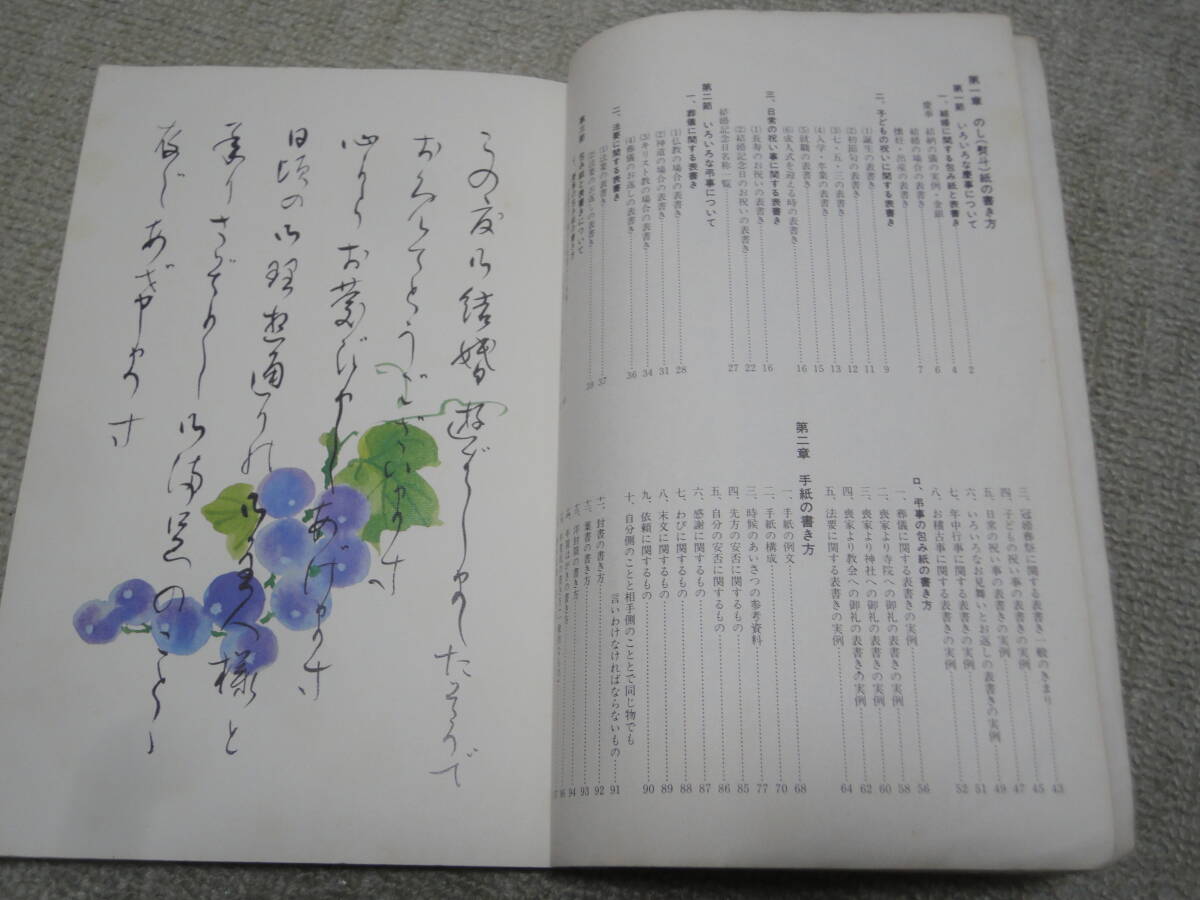 この度御結婚遊ばしましたそうで
おめでとうございます
心よりお慶び申しあげます
日頃の御理想通りの御主人様と
承りさぞかし御満足のことと
存じあげ申ます
第一章 のし(熨斗)紙の書き方
第一節 いろいろな慶事について
一、結婚に関する包み紙と表書き……2
結納の儀の実例・金銀……4
結婚の場合の表書き……7
懐妊・出産の表書き
二、子どもの祝いに関する表書き……9
(1)誕生の表書き……11
(2)初節句の表書き……12
(3)七・五・三の表書き……13
(4)入学・卒業の表書き……15
(5)就職の表書き……16
(6)成人式を迎える時の表書き
三、日常の祝い事に関する表書き……16
(1)長寿のお祝いの表書き……22
(2)結婚記念日のお祝いの表書き
結婚記念日名称一覧……27
第二節 いろいろな弔事について
一、葬儀に関する表書き
(1)仏教の場合の表書き……28
(2)神道の場合の表書き……31
(3)キリスト教の場合の表書き……34
(4)葬儀のお返しの表書き……36
二、法要に関する表書き
(1)法要の表書き……37
(2)法要のお返しの表書き……39
三、冠婚葬祭に関する表書き一般のきまり……43
四、子どもの祝い事の表書きの実例……45
五、日常の祝い事の表書きの実例……47
六、いろいろなお見舞いとお返しの表書きの実例……49
七、年中行事に関する表書きの実例……51
八、お稽古事に関する表書きの実例……52
ロ、弔事の包み紙の書き方……56
一、葬儀に関する表書きの実例……58
二、喪家より寺院への御礼の表書きの実例……60
三、喪家より神社への御礼の表書きの実例……62
四、喪家より教会への御礼の表書きの実例
五、法要に関する表書きの実例……64
第二章 手紙の書き方
一、手紙の例文……68
二、手紙の構成……70
三、時候のあいさつの参考資料……77
四、先方の安否に関するもの……85
五、自分の安否に関するもの……86
六、感謝に関するもの……87
七、わびに関するもの……88
八、末文に関するもの……89
九、依頼に関するもの……90
十、自分側のことと相手側のことで同じ物でも
言いわけなければならないもの……91
十一、封書の書き方……92
十二、葉書の書き方……93